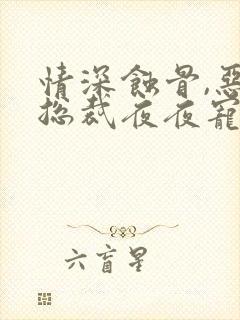 情深蝕骨,惡
总裁夜夜寵
六盲星